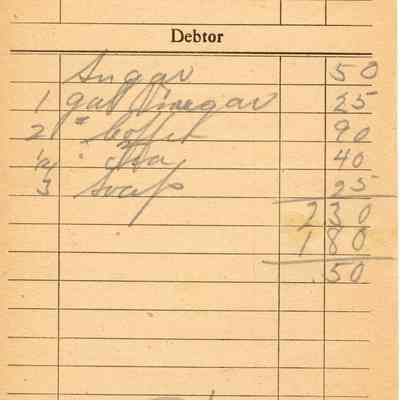 Debtor
Sugar 50
1 gal Vinegar 25
2 " Coffee 90
1/2 " Tea 40
3 Soap 25
2 30
1 80
.50